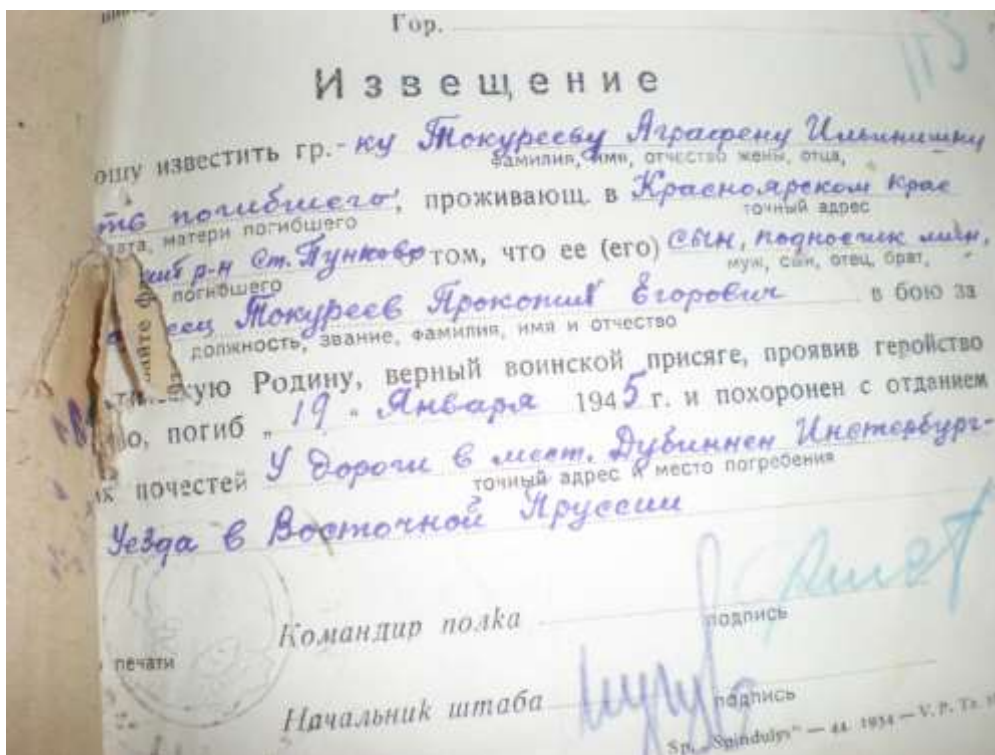 Гор.
Извещение
ошу известить гр.-ку Токурееву Аграфену Ильинишну
фамилия, имя, отчество жены, отца,
ть погибшего, проживающ. в Красноярском крае
рата, матери погибшего
точный адрес
р-н ст. Пунково том, что ее (его) сын, подносчик мин,
погибшего
муж, сын, отец, брат,
еец Токуреев Прокопий Егорович в бою за
должность, звание, фамилия, имя и отчество
скую Родину, верный воинской присяге, проявив геройство
во, погиб „19" Января 1945 г. и похоронен с отданием
их почестей У дороги в мест. Дубиннен Инстербург-
точный адрес и место погребения
Уезда в Восточной Пруссии
Командир полка
подпись
печати
Начальник штаба
подпись
Sp. „Spindulys" — 44. 1934 — V. P. Tz.